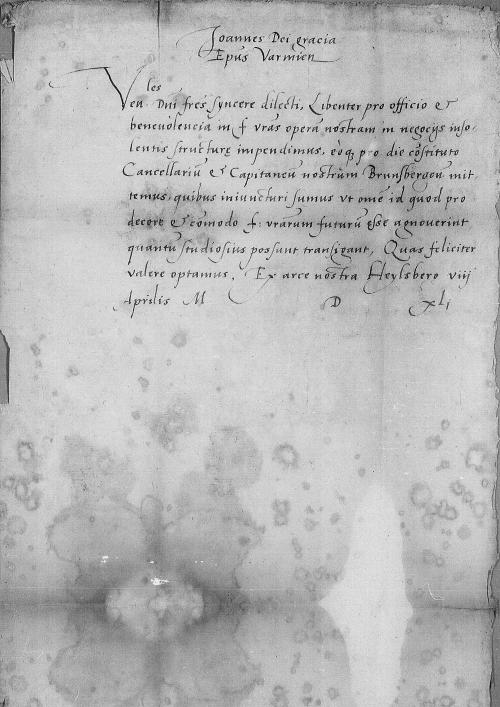 Joannes Dei gracia
Epūs Varmien
Vēn. Dnī frēs syncere dilecti, Libenter pro officio &
benevolencia in f. vrās operā nostram in negocijs inso-
lentis structurę impendimus, eòq̨ pro die cōstituto
Cancellariū & Capitaneū nostrūm Brunsbergeñ mit-
temus, quibus iniuncturi sumus ut omē id quod pro
decore & cōmodo f. vrarum futurū esse agnoverint
quantū studiosius possunt transigant, Quas feliciter
valere optamus. Ex arce nostra Heylsberg viij
Aprilis M D xli